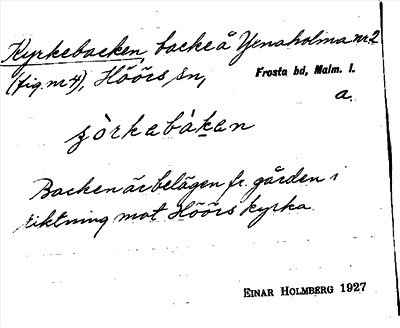 Kyrkebacken, backe å Yxnaholma nr 2
(fig. nr 4), Höörs sn,
Frosta hd, Malm. l.
a.
Backen är belägen fr. gården i
riktning mot Höörs kyrka.
EINAR HOLMBERG 1927